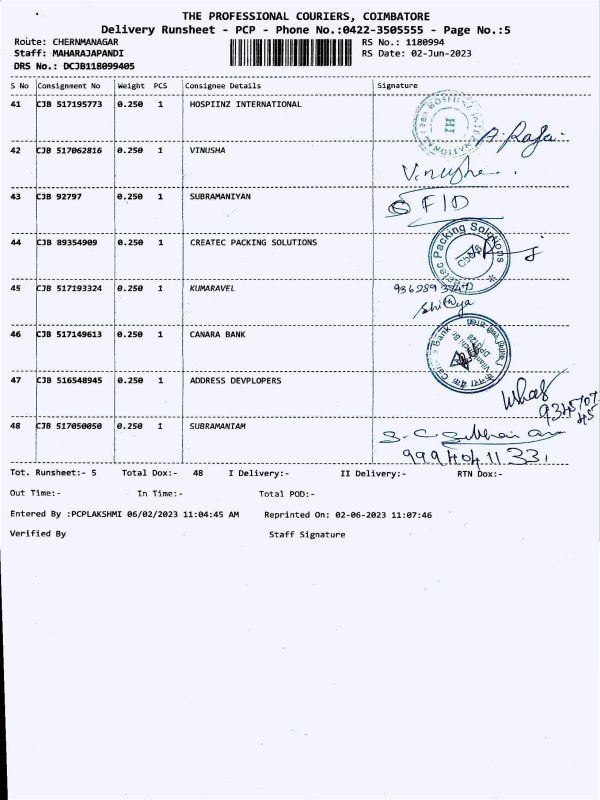 THE PROFESSIONAL COURIERS, COIMBATORE
Delivery Runsheet - PCP - Phone No.:0422-3505555 - Page No.:5
Route: CHERNMANAGAR RS No.: 1180994
Staff: MAHARAJAPANDI RS Date: 02-Jun-2023
DRS No.: DCJB118099405
S No Consignment No Weight PCS Consignee Details Signature
41 CJB 517195773 0.250 1 HOSPIINZ INTERNATIONAL
HI
A. Raja
42 CJB 517062816 0.250 1 VINUSHA
Vinusha
43 CJB 92797 0.250 1 SUBRAMANIYAN
FID
44 CJB 89354909 0.250 1 CREATEC PACKING SOLUTIONS
Createc Packing Solutions
45 CJB 517193324 0.250 1 KUMARAVEL
46 CJB 517149613 0.250 1 CANARA BANK
Canara Bank
47 CJB 516548945 0.250 1 ADDRESS DEVPLOPERS
48 CJB 517050050 0.250 1 SUBRAMANIAM
Tot. Runsheet:- 5 Total Dox:- 48 I Delivery:- II Delivery:- RTN Dox:-
Out Time:- In Time:- Total POD:-
Entered By :PCPLAKSHMI 06/02/2023 11:04:45 AM Reprinted On: 02-06-2023 11:07:46
Verified By Staff Signature